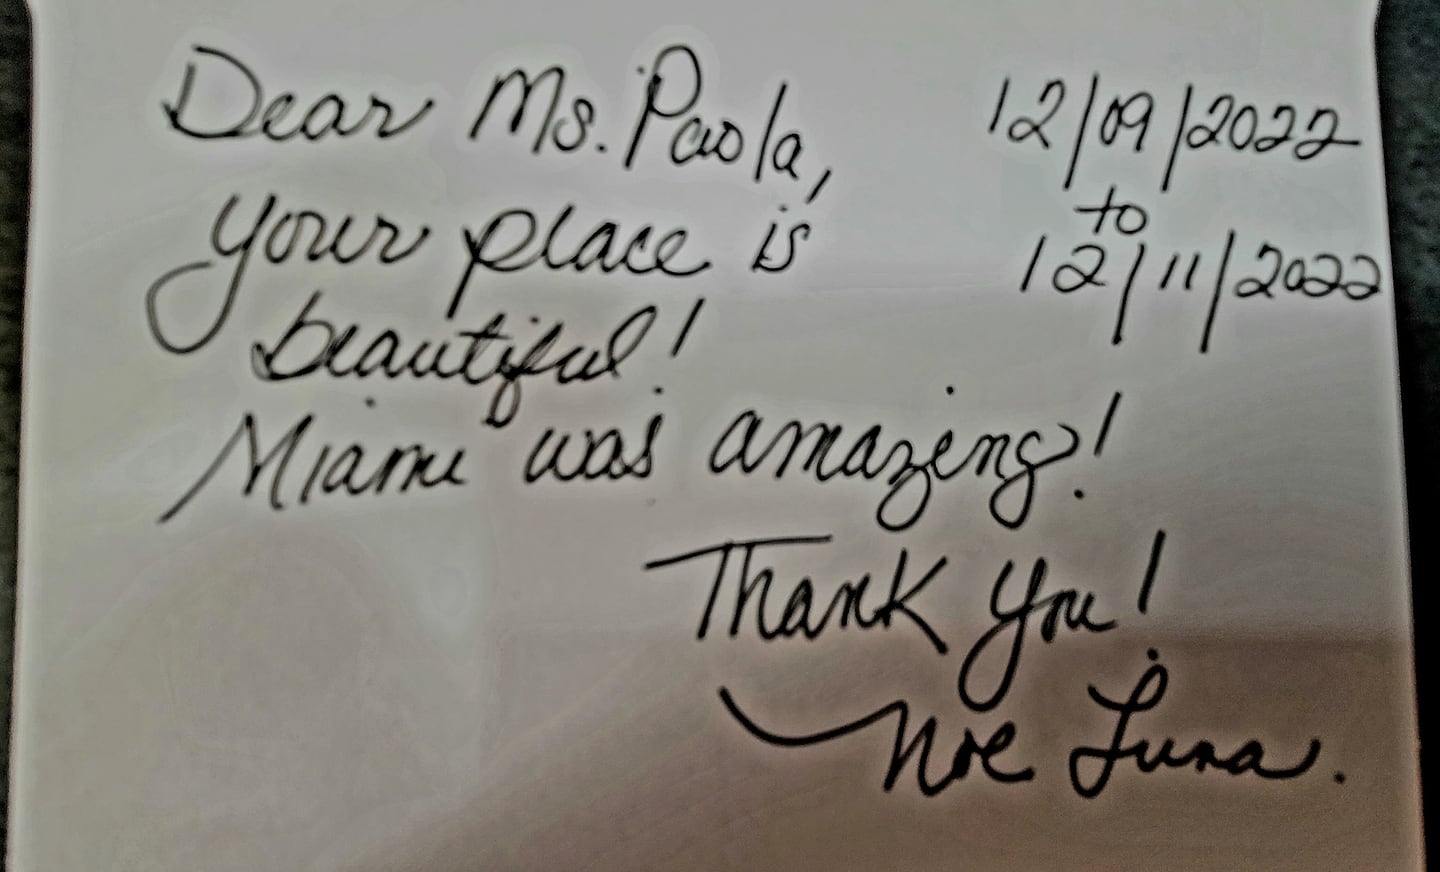 Dear Ms. Paola,
your place is
beautiful!
Miami was amazing!
Thank you!
Noe Luna.
12/09/2022
to
12/11/2022